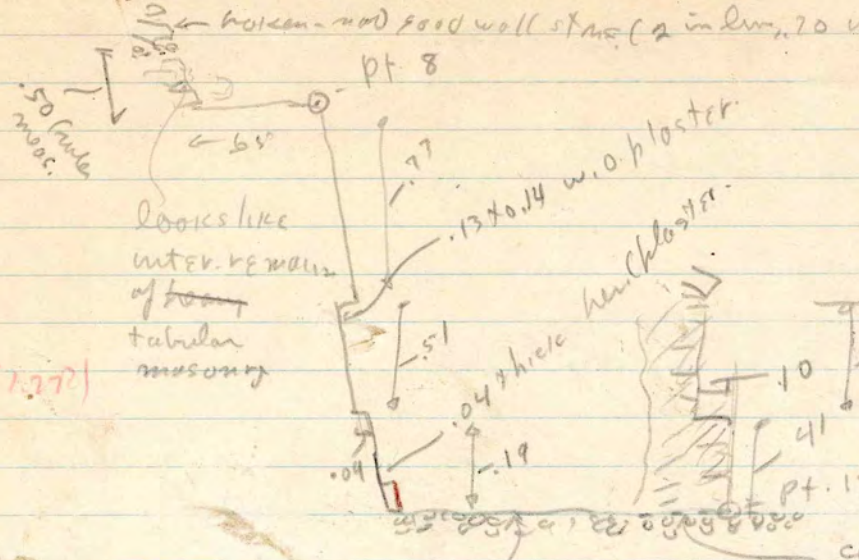 broken - not good wall stone (2 in line, .70
pt. 8
.50
meas.
.77
.13 x 0.14 w.o. plaster.
looks like
inter. remains
of heavy
tabular
masonry
.51
.04 thick here (plaster.
.10
.04
.19
41
pt. 1